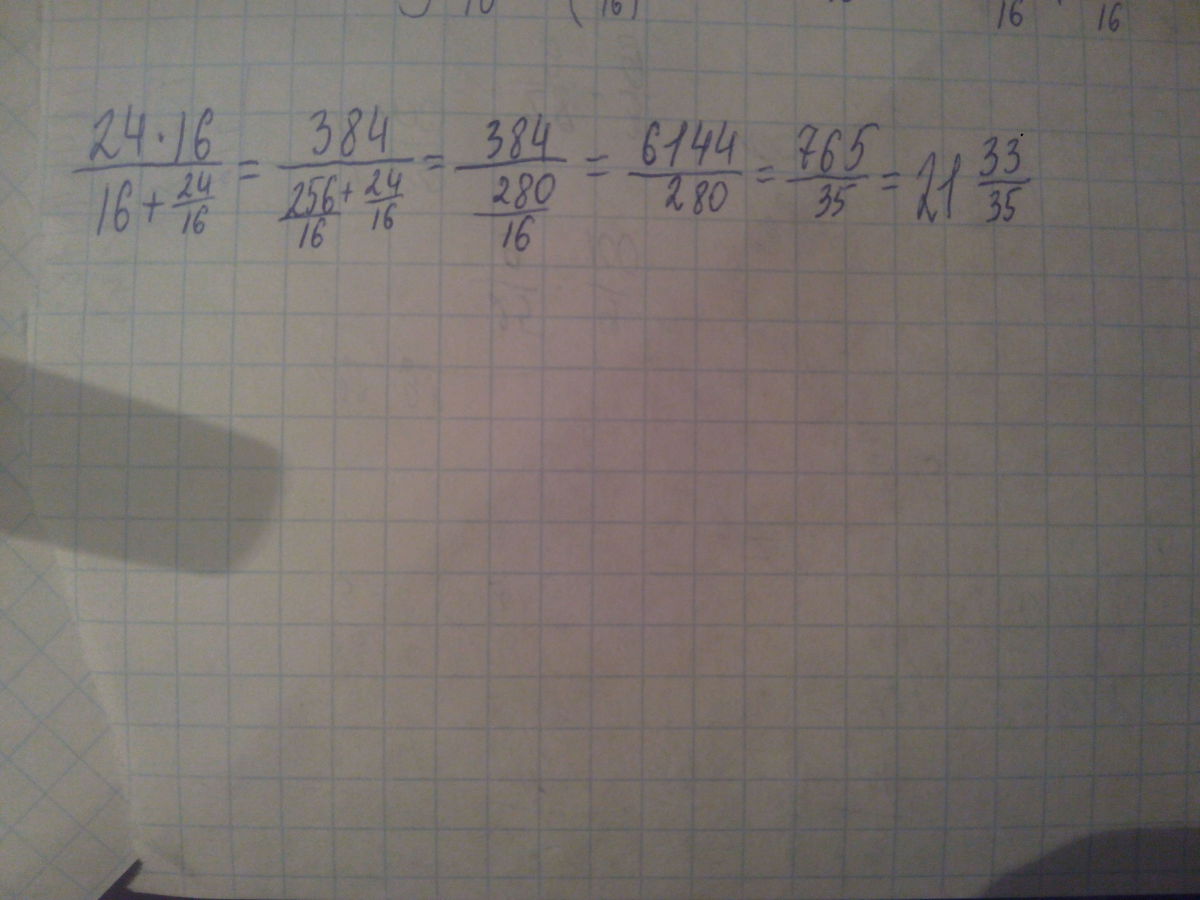 16) 16 16
\frac{24 \cdot 16}{16 + \frac{24}{16}} = \frac{384}{\frac{256}{16} + \frac{24}{16}} = \frac{384}{\frac{280}{16}} = \frac{6144}{280} = \frac{765}{35} = 21 \frac{33}{35}